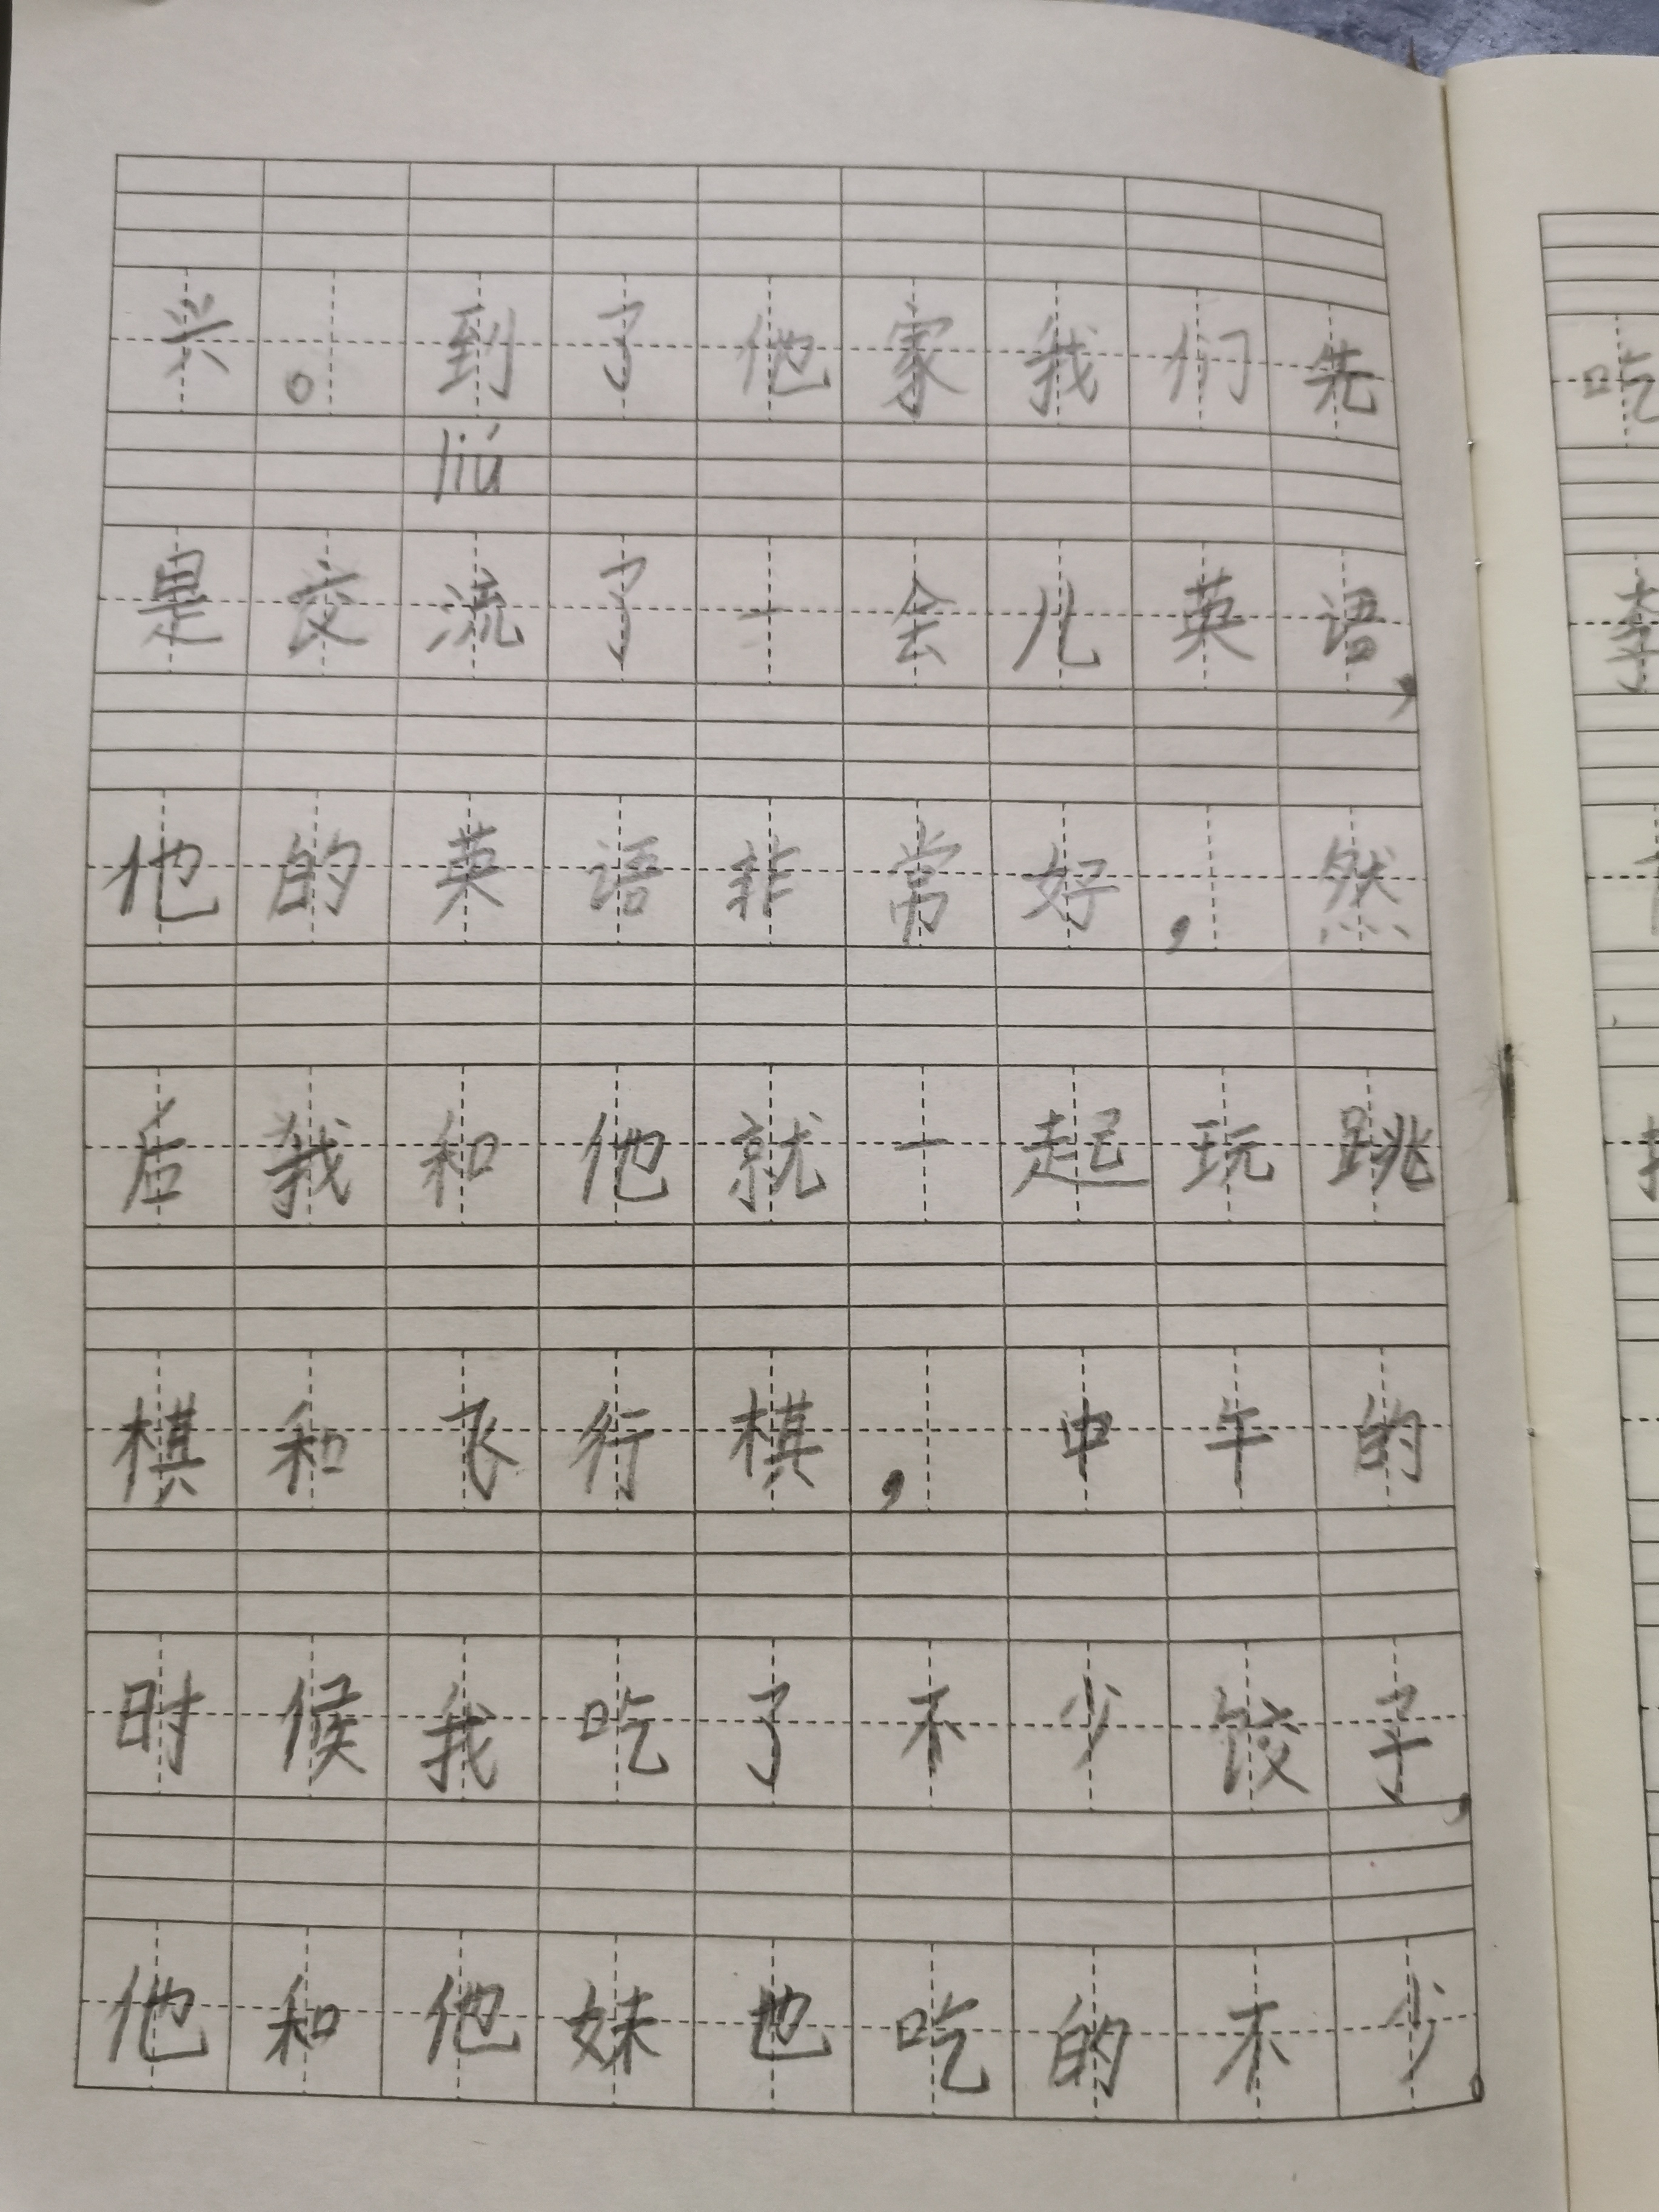 兴。到了他家我们先
liú
是交流了一会儿英语，
他的英语非常好，然
后我和他就一起玩跳
棋和飞行棋，中午的
时候我吃了不少饺子，
他和他妹也吃的不少。
吃